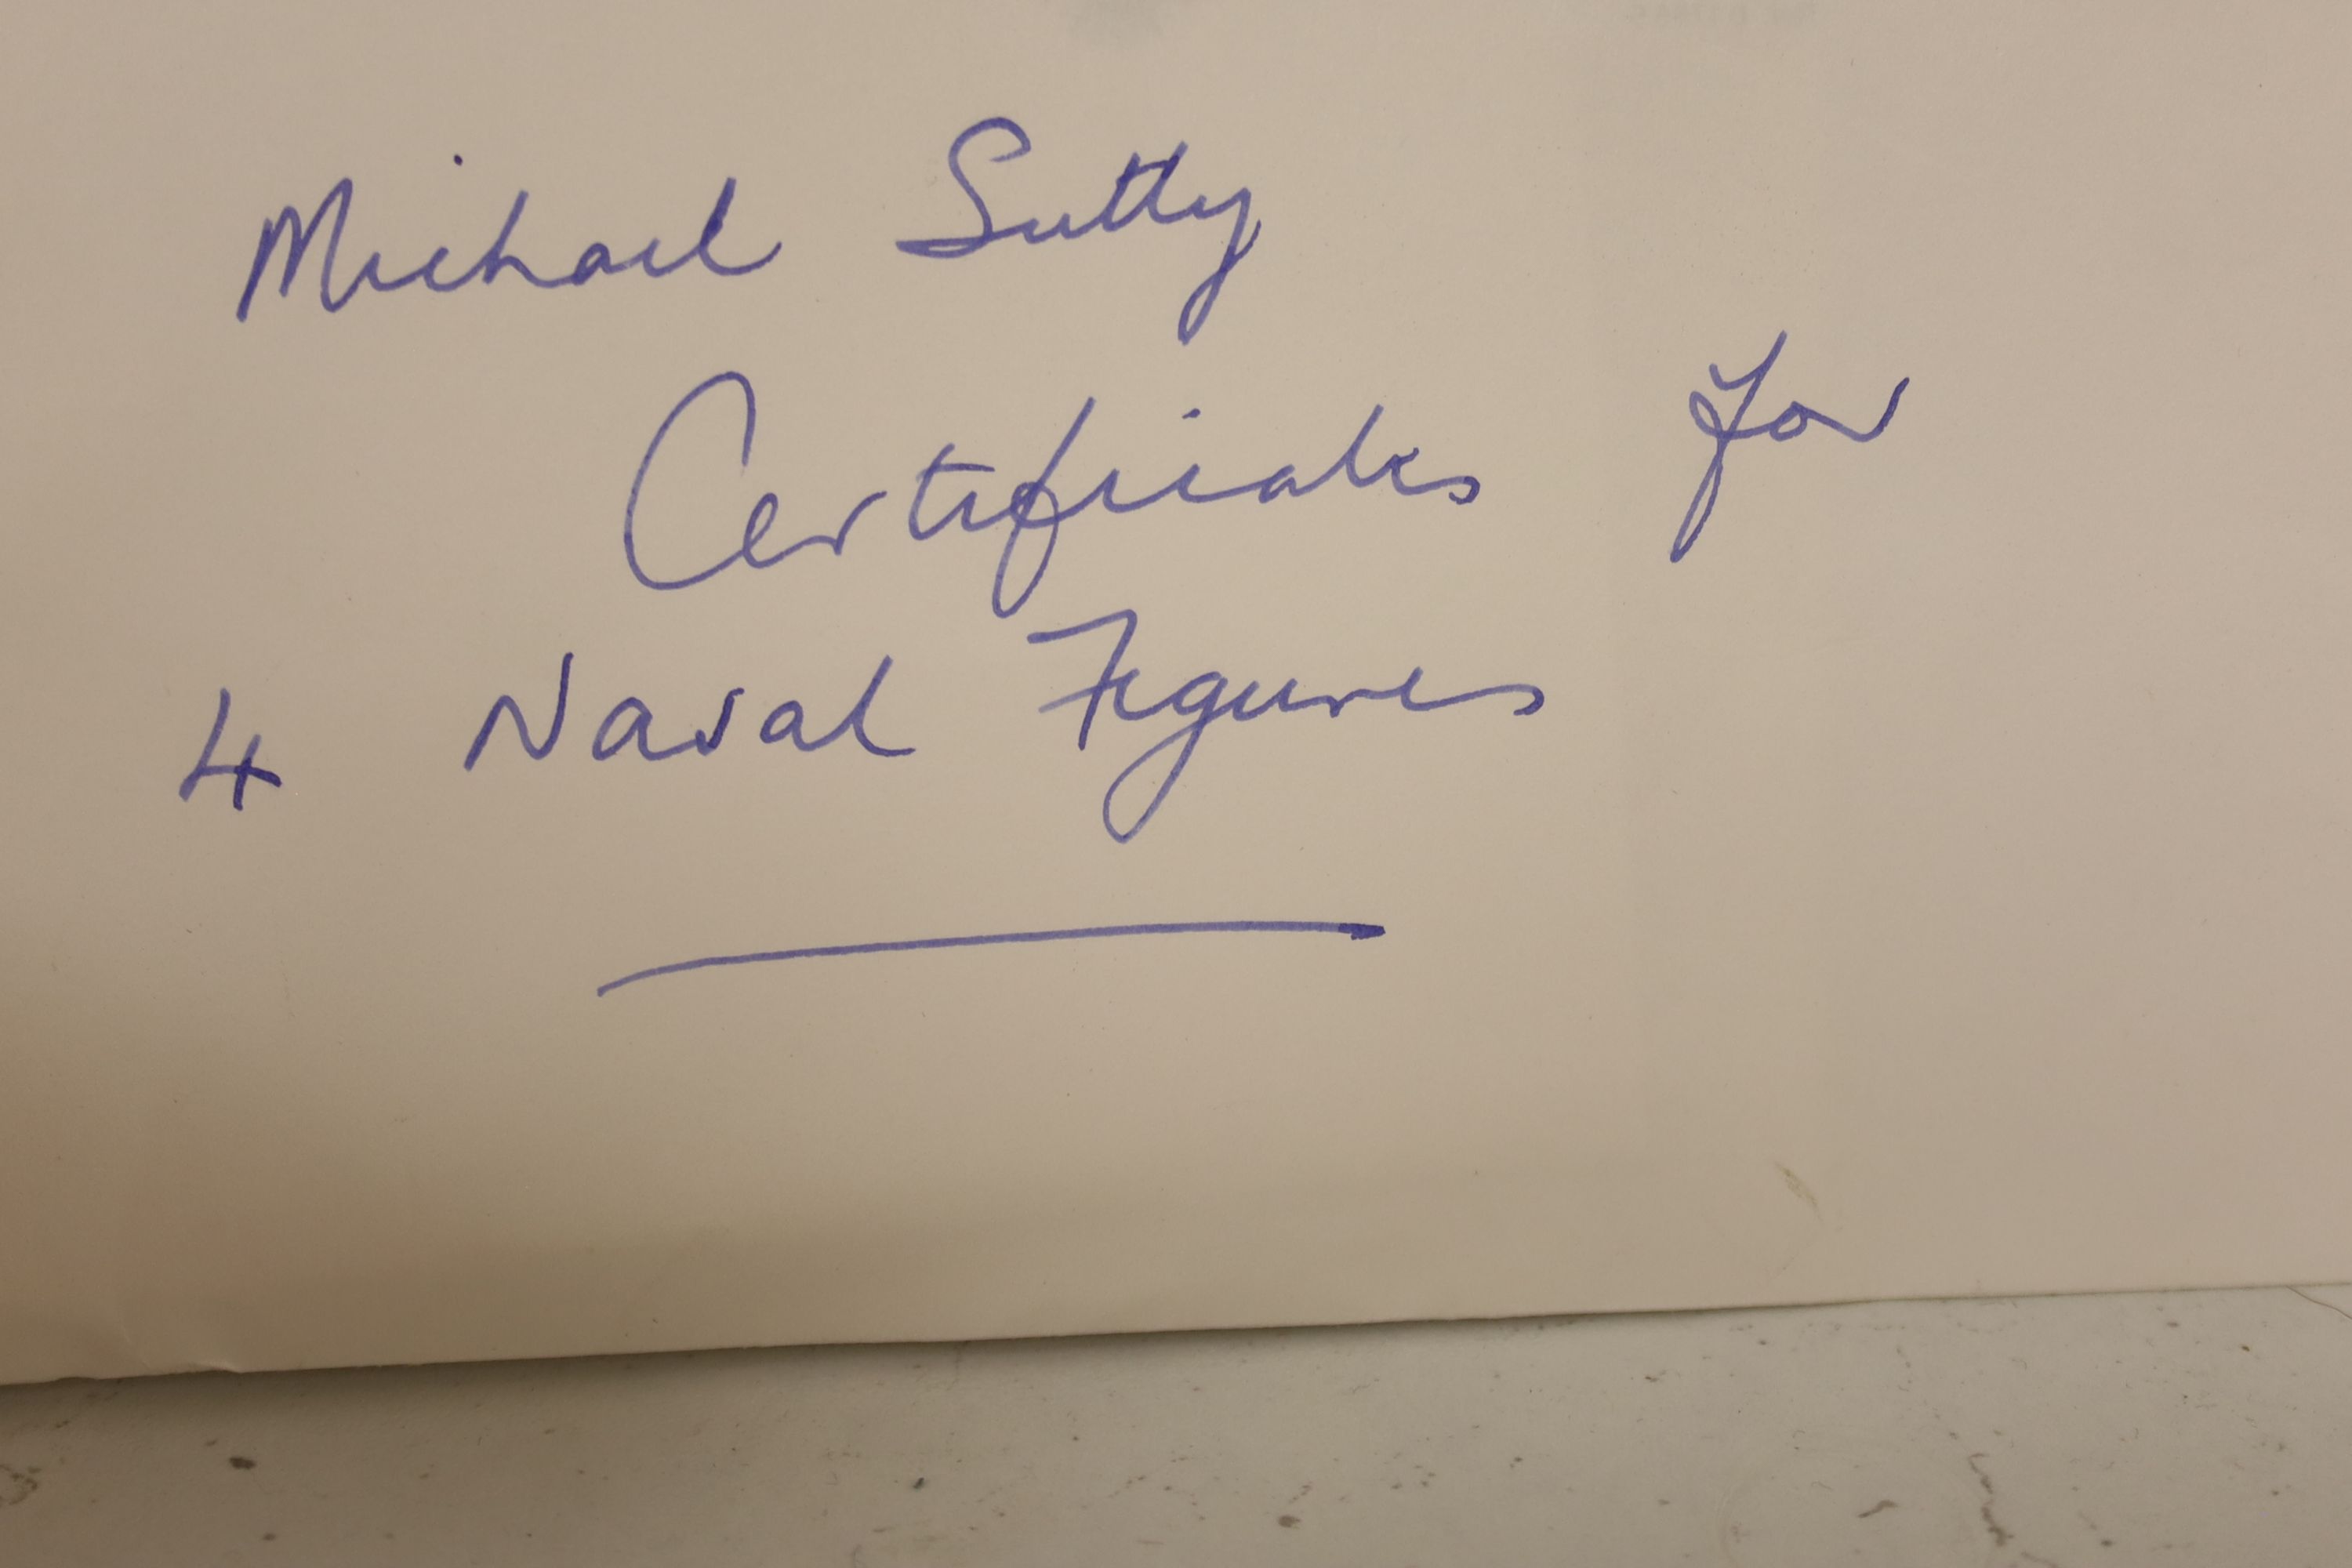 Michael Sutty
Certificates for
4 Naval Figures